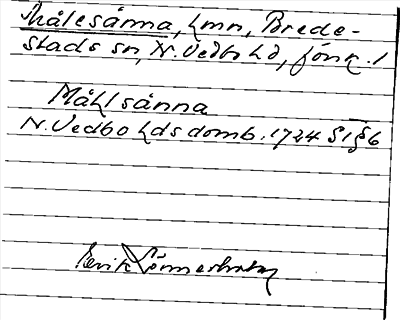 Målesånna, Lmn, Brede-
stads sn, N. Vedbo hd, Jönk. l
Måhlsånna
N. Vedbo hds domb. 1724 § 1 § 6
Erik Lönnerholm